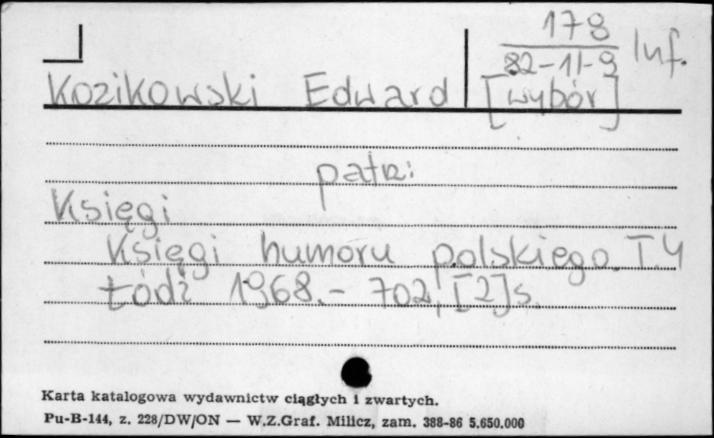 178
82-11-9 Inf.
Kozikowski Edward [wybór]
patrz:
Księgi
Księgi humoru polskiego. T.4
Łódź 1968.- 702, [2] s.
Karta katalogowa wydawnictw ciągłych i zwartych.
Pu-B-144, z. 228/DW/ON — W.Z.Graf. Milicz, zam. 388-86 5.650.000